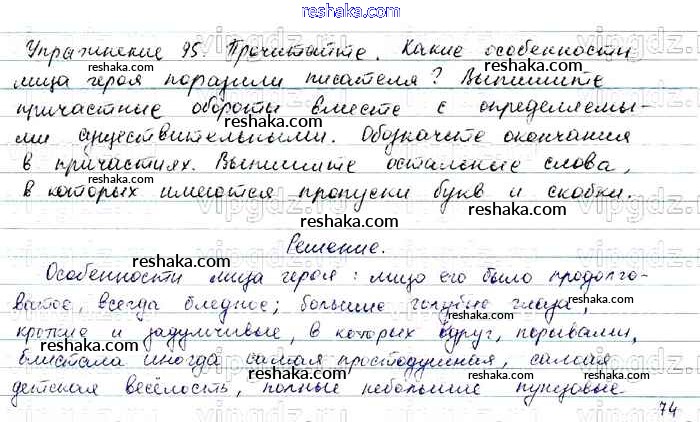 reshaka.com
Упражнение 95. Прочитайте. Какие особенности
reshaka.com
лица героя поразили писателя? Выпишите
reshaka.com
причастные обороты вместе с определяемы-
reshaka.com
ми существительными. Обозначьте окончания
reshaka.com
в причастиях. Выпишите остальные слова,
reshaka.com
в которых имеются пропуски букв и скобки.
reshaka.com
Решение.
reshaka.com
Особенности лица героя: лицо его было продолго-
reshaka.com
ватое, всегда бледное; большие голубые глаза,
reshaka.com
кроткие и задумчивые, в которых вдруг, порывами,
reshaka.com
блистала иногда самая простодушная, самая
reshaka.com
детская весёлость, полные небольшие пунцовые
reshaka.com
74